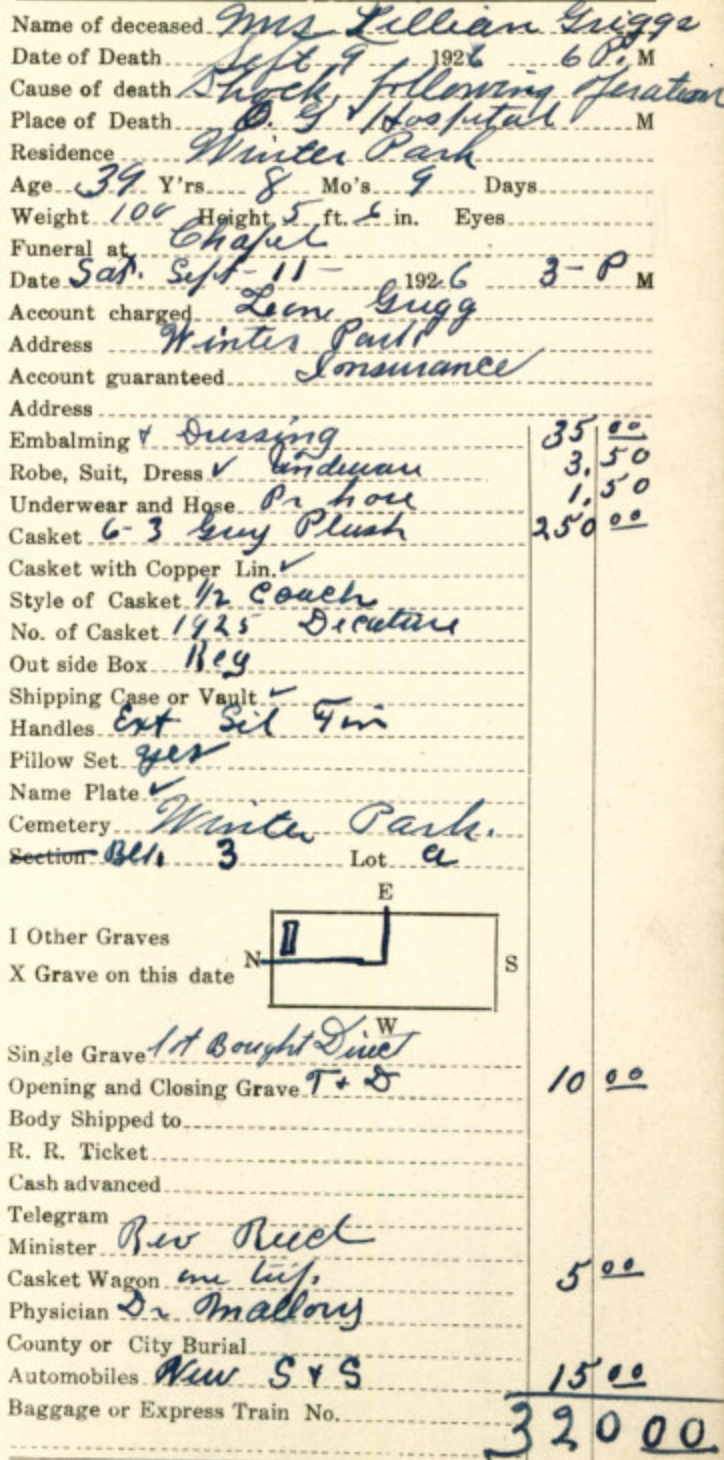 Name of deceased Mrs Lillian Griggs
Date of Death Sept 9 1926 6 P. M
Cause of death Shock, following operation
Place of Death O. G. Hospital M
Residence Winter Park
Age 39 Y'rs 8 Mo's 9 Days
Weight 100 Height 5 ft. 6 in. Eyes
Funeral at Chapel
Date Sat. Sept-11- 1926 3-P M
Account charged Leon Grigg
Address Winter Park
Account guaranteed Insurance
Address
Embalming & Dressing 35 00
Robe, Suit, Dress ✓ underwear 3.50
Underwear and Hose Pr hose 1.50
Casket 6-3 Grey Plush 250 00
Casket with Copper Lin. ✓
Style of Casket 1/2 Couch
No. of Casket 1925 Decature
Out side Box Reg
Shipping Case or Vault ✓
Handles Ext Sil Fin
Pillow Set yes
Name Plate ✓
Cemetery Winter Park.
Section Blk. 3 Lot a
E
I Other Graves
N S
X Grave on this date
W
Single Grave lot Bought Direct
Opening and Closing Grave T & D 10 00
Body Shipped to
R. R. Ticket
Cash advanced
Telegram
Minister Rev Reed
Casket Wagon one trip. 5 00
Physician Dr Mallory
County or City Burial
Automobiles New S & S 15 00
Baggage or Express Train No.
320 00